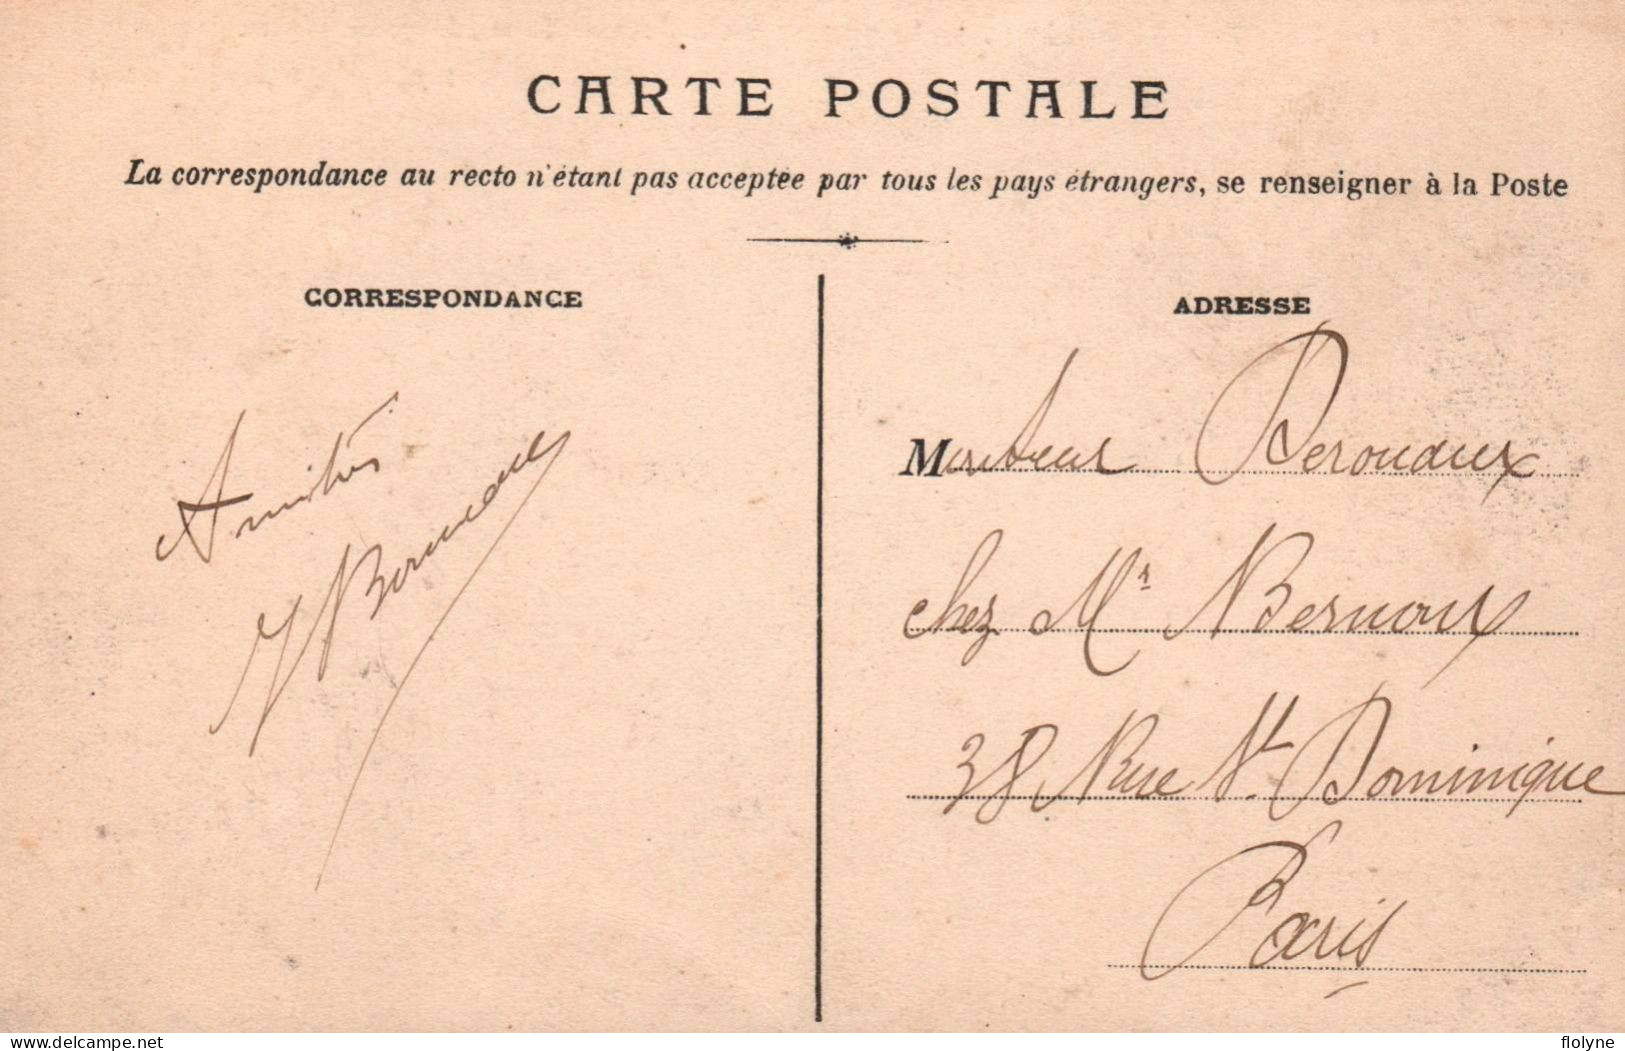 CARTE POSTALE
La correspondance au recto n'étant pas acceptée par tous les pays étrangers, se renseigner à la Poste
CORRESPONDANCE
Amitiés
ADRESSE
Monsieur Derouaux
chez Mr Bernoux
38 Rue St. Dominique
Paris
delcampe.net
flolyne